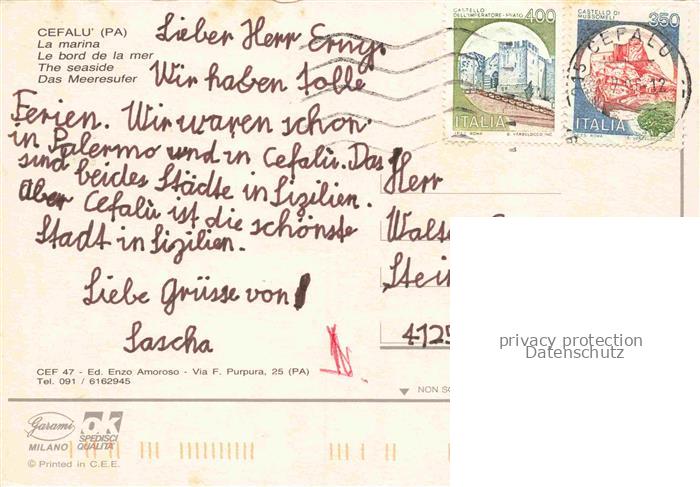 CEFALU' (PA)
La marina
Le bord de la mer
The seaside
Das Meeresufer
Lieber Herr Erny,
Wir haben tolle
Ferien. Wir waren schon
in Palermo und in Cefalù. Das
sind beides Städte in Sizilien.
Aber Cefalù ist die schönste
Stadt in Sizilien.
Liebe Grüsse von
Sascha
CASTELLO DELL'IMPERATORE-PRATO 400
ITALIA
CASTELLO DI MUSSOMELI 350
ITALIA
CEFALU
Herr
4125
privacy protection
Datenschutz
CEF 47 - Ed. Enzo Amoroso - Via F. Purpura, 25 (PA)
Tel. 091 / 6162945
NON
Garami
MILANO
ok
SPEDISCI
QUALITÀ
© Printed in C.E.E.